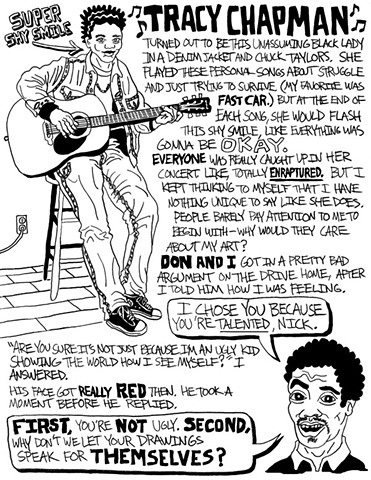 SUPER
SHY SMILE
TRACY CHAPMAN
TURNED OUT TO BE THIS UNASSUMING BLACK LADY
IN A DENIM JACKET AND CHUCK TAYLORS. SHE
PLAYED THESE PERSONAL SONGS ABOUT STRUGGLE
AND JUST TRYING TO SURVIVE. (MY FAVORITE WAS
FAST CAR.) BUT AT THE END OF
EACH SONG, SHE WOULD FLASH
THIS SHY SMILE, LIKE EVERYTHING WAS
GONNA BE OKAY.
EVERYONE WAS REALLY CAUGHT UP IN HER
CONCERT LIKE, TOTALLY ENRAPTURED. BUT I
KEPT THINKING TO MYSELF THAT I HAVE
NOTHING UNIQUE TO SAY LIKE SHE DOES.
PEOPLE BARELY PAY ATTENTION TO ME TO
BEGIN WITH—WHY WOULD THEY CARE
ABOUT MY ART?
DON AND I GOT IN A PRETTY BAD
ARGUMENT ON THE DRIVE HOME, AFTER
I TOLD HIM HOW I WAS FEELING.
I CHOSE YOU BECAUSE
YOU'RE TALENTED, NICK.
"ARE YOU SURE IT'S NOT JUST BECAUSE I'M AN UGLY KID
SHOWING THE WORLD HOW I SEE MYSELF?" I
ANSWERED.
HIS FACE GOT REALLY RED THEN. HE TOOK A
MOMENT BEFORE HE REPLIED.
FIRST, YOU'RE NOT UGLY. SECOND,
WHY DON'T WE LET YOUR DRAWINGS
SPEAK FOR THEMSELVES?